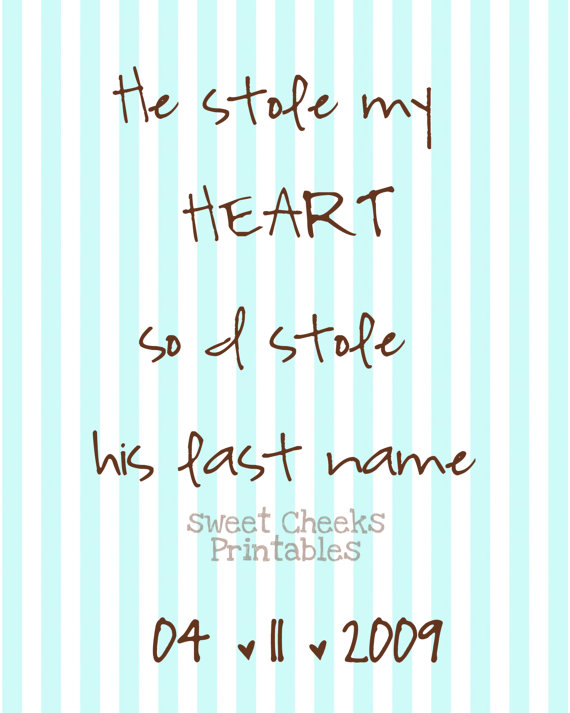 He stole my
HEART
so I stole
his last name
Sweet Cheeks
Printables
04 ♥ 11 ♥ 2009